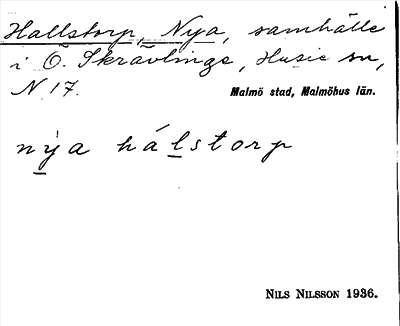 Hallstorp, Nya, samhälle
i Ö. Skrävlinge, Husie sn,
N 17.
Malmö stad, Malmöhus län.
nya hálstorp
NILS NILSSON 1936.